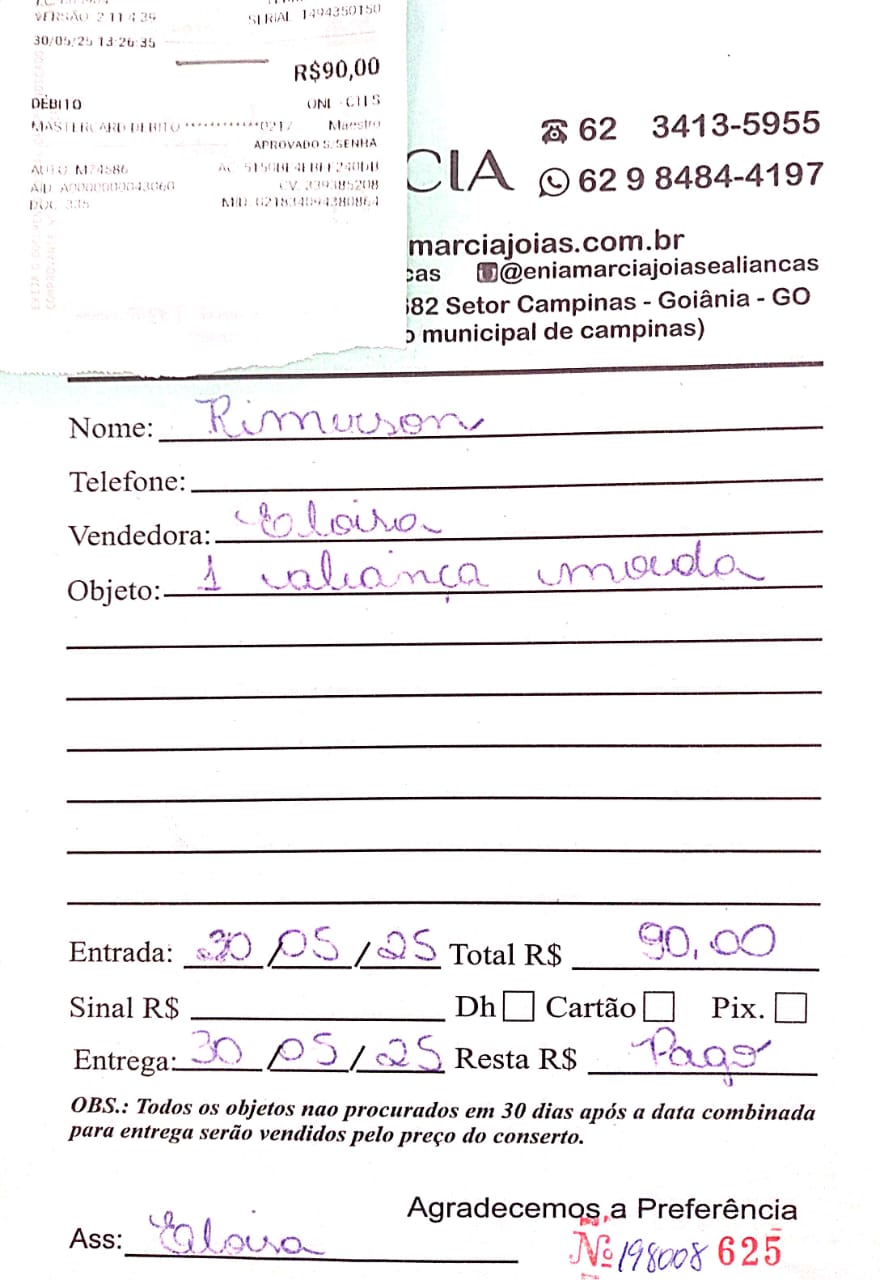 VERSÃO 2.11.4.39
SERIAL 1494350150
30/05/25 13:26:35
R$90,00
DÉBITO
ONL-C115
MASTERCARD DEBITO ************0217 Maestro
APROVADO S/SENHA
CV. 339385208
DOC. 335
CIA
62 3413-5955
62 9 8484-4197
marciajoias.com.br
cas @eniamarciajoiasealiancas
682 Setor Campinas - Goiânia - GO
o municipal de campinas)
Nome: Rimerson
Telefone:
Vendedora: Eloisa
Objeto: 1 aliança moeda
Entrada: 30/05/25 Total R$ 90,00
Sinal R$ Dh Cartão Pix.
Entrega: 30/05/25 Resta R$ Pago
OBS.: Todos os objetos nao procurados em 30 dias após a data combinada
para entrega serão vendidos pelo preço do conserto.
Agradecemos a Preferência
Ass: Eloisa
Nº 198008 625